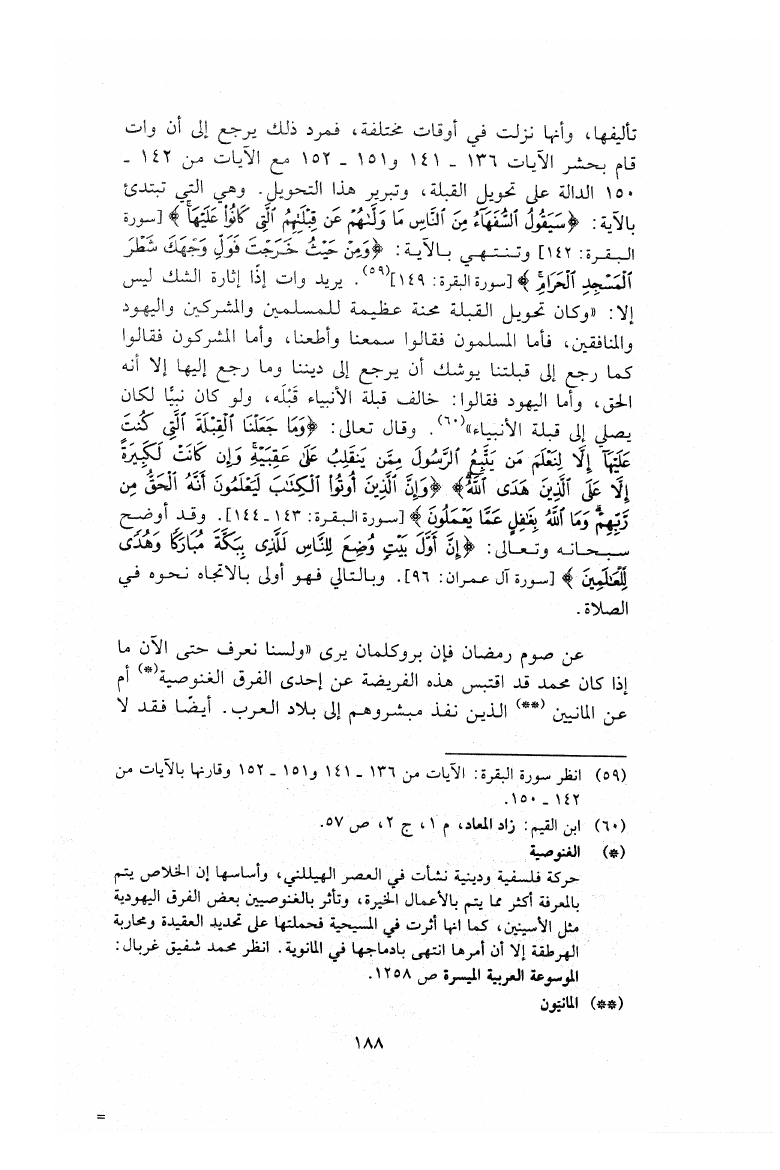 تأليفها، وأنها نزلت في أوقات مختلفة، فمرد ذلك يرجع إلى أن وات
قام بحشر الآيات ١٣٦ ـ ١٤١ و١٥١ ـ ١٥٢ مع الآيات من ١٤٢ ـ
١٥٠ الدالة على تحويل القبلة، وتبرير هذا التحويل. وهي التي تبتدئ
بالآية: ﴿سَيَقُولُ ٱلسُّفَهَآءُ مِنَ ٱلنَّاسِ مَا وَلَّىٰهُمْ عَن قِبْلَتِهِمُ ٱلَّتِي كَانُوا۟ عَلَيْهَا﴾ [سورة
البقرة: ١٤٢] وتنتهي بالآية: ﴿وَمِنْ حَيْثُ خَرَجْتَ فَوَلِّ وَجْهَكَ شَطْرَ
ٱلْمَسْجِدِ ٱلْحَرَامِ﴾ [سورة البقرة: ١٤٩]^(٥٩). يريد وات إذًا إثارة الشك ليس
إلا: «وكان تحويل القبلة محنة عظيمة للمسلمين والمشركين واليهود
والمنافقين، فأما المسلمون فقالوا سمعنا وأطعنا، وأما المشركون فقالوا
كما رجع إلى قبلتنا يوشك أن يرجع إلى ديننا وما رجع إليها إلا أنه
الحق، وأما اليهود فقالوا: خالف قبلة الأنبياء قَبْلَه، ولو كان نبيًّا لكان
يصلي إلى قبلة الأنبياء»(٦٠). وقال تعالى: ﴿وَمَا جَعَلْنَا ٱلْقِبْلَةَ ٱلَّتِي كُنتَ
عَلَيْهَآ إِلَّا لِنَعْلَمَ مَن يَتَّبِعُ ٱلرَّسُولَ مِمَّن يَنقَلِبُ عَلَىٰ عَقِبَيْهِ وَإِن كَانَتْ لَكَبِيرَةً
إِلَّا عَلَى ٱلَّذِينَ هَدَى ٱللَّهُ﴾ ﴿وَإِنَّ ٱلَّذِينَ أُوتُوا۟ ٱلْكِتَٰبَ لَيَعْلَمُونَ أَنَّهُ ٱلْحَقُّ مِن
رَّبِّهِمْ وَمَا ٱللَّهُ بِغَٰفِلٍ عَمَّا يَعْمَلُونَ﴾ [سورة البقرة: ١٤٣ـ١٤٤]. وقد أوضح
سبحانه وتعالى: ﴿إِنَّ أَوَّلَ بَيْتٍ وُضِعَ لِلنَّاسِ لَلَّذِى بِبَكَّةَ مُبَارَكًا وَهُدًى
لِّلْعَٰلَمِينَ﴾ [سورة آل عمران: ٩٦]. وبالتالي فهو أولى بالاتجاه نحوه في
الصلاة.
عن صوم رمضان فإن بروكلمان يرى «ولسنا نعرف حتى الآن ما
إذا كان محمد قد اقتبس هذه الفريضة عن إحدى الفرق الغنوصية(*) أم
عن المانيين(**) الذين نفذ مبشروهم إلى بلاد العرب. أيضًا فقد لا
(٥٩) انظر سورة البقرة: الآيات من ١٣٦ ـ ١٤١ و١٥١ ـ ١٥٢ وقارنها بالآيات من
١٤٢ ـ ١٥٠.
(٦٠) ابن القيم: زاد المعاد، م ١، ج ٢، ص ٥٧.
(*) الغنوصية
حركة فلسفية ودينية نشأت في العصر الهيللني، وأساسها إن الخلاص يتم
بالمعرفة أكثر مما يتم بالأعمال الخيرة، وتأثر بالغنوصيين بعض الفرق اليهودية
مثل الأسينين، كما انها أثرت في المسيحية فحملتها على تحديد العقيدة ومحاربة
الهرطقة إلا أن أمرها انتهى بادماجها في المانوية. انظر محمد شفيق غربال:
الموسوعة العربية الميسرة ص ١٢٥٨.
(**) المانيون
١٨٨
=